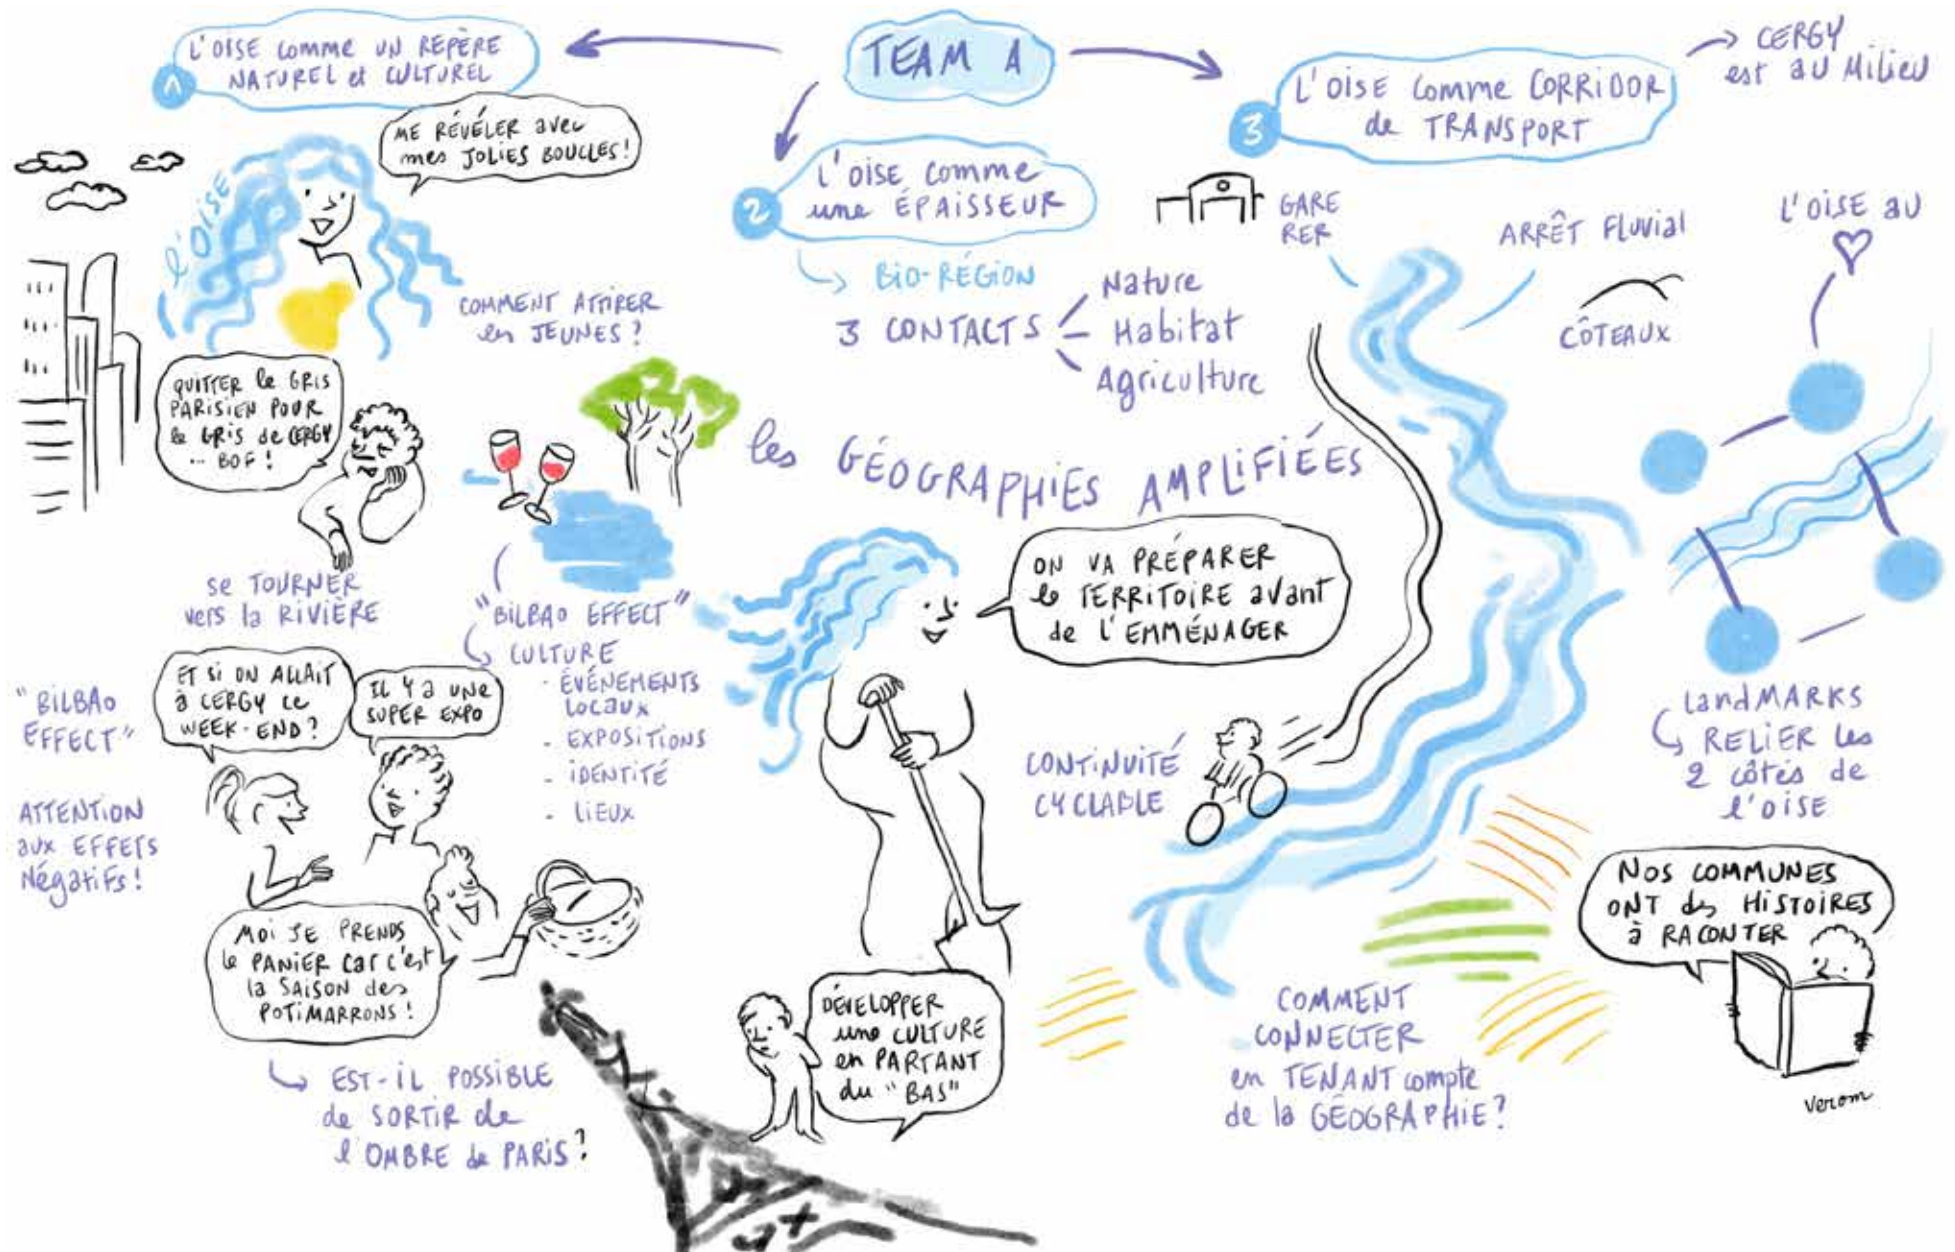 TEAM A
1
L'OISE comme UN REPÈRE
NATUREL et CULTUREL
ME RÉVÉLER avec
mes JOLIES BOUCLES!
l'OISE
COMMENT ATTIRER
les JEUNES?
QUITTER le GRIS
PARISIEN POUR
le GRIS de CERGY
... BOF!
se TOURNER
vers la RIVIÈRE
"BILBAO EFFECT"
CULTURE
- ÉVÉNEMENTS
LOCAUX
- EXPOSITIONS
- IDENTITÉ
- LIEUX
"BILBAO
EFFECT"
ATTENTION
aux EFFETS
Négatifs!
ET SI ON ALLAIT
à CERGY CE
WEEK-END?
IL Y a UNE
SUPER EXPO
MOI JE PRENDS
le PANIER car c'est
la SAISON des
POTIMARRONS!
EST-IL POSSIBLE
de SORTIR de
l'OMBRE de PARIS?
2
L'OISE comme
une ÉPAISSEUR
BIO-RÉGION
3 CONTACTS
Nature
Habitat
Agriculture
les GÉOGRAPHIES AMPLIFIÉES
ON VA PRÉPARER
le TERRITOIRE avant
de L'EMMÉNAGER
DÉVELOPPER
une CULTURE
en PARTANT
du "BAS"
3
L'OISE comme CORRIDOR
de TRANSPORT
CERGY
est au Milieu
GARE
RER
ARRÊT FLUVIAL
CÔTEAUX
L'OISE AU
CONTINUITÉ
CYCLABLE
LandMARKS
RELIER les
2 côtés de
l'OISE
NOS COMMUNES
ONT des HISTOIRES
à RACONTER
COMMENT
CONNECTER
en TENANT compte
de la GÉOGRAPHIE?
Verom